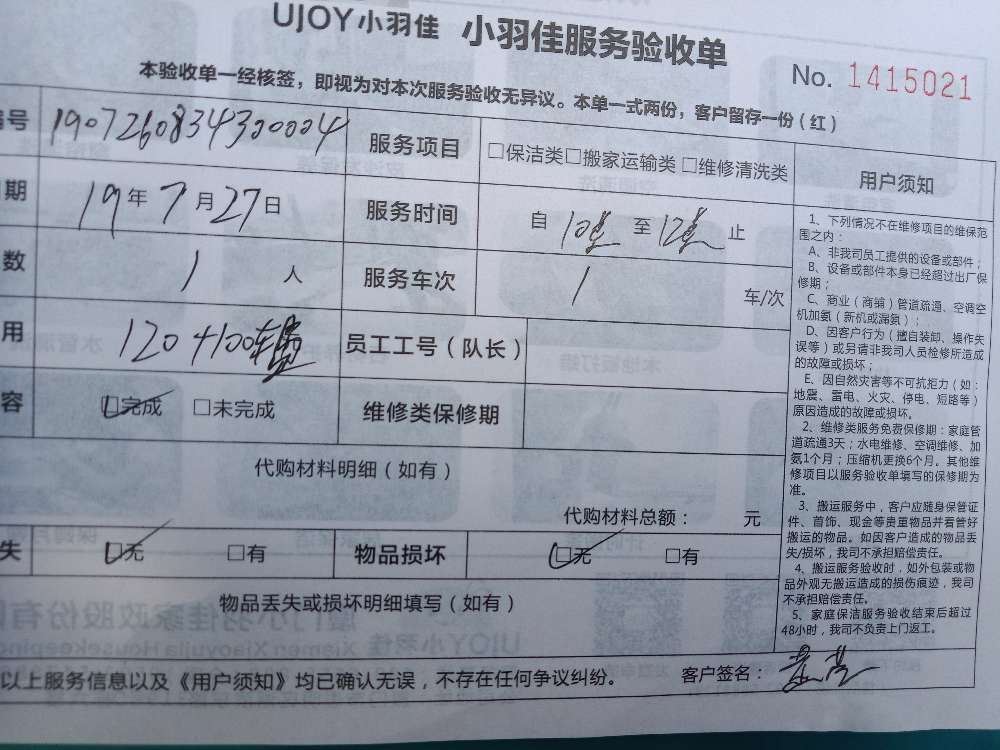 UJOY小羽佳 小羽佳服务验收单
No. 1415021
本验收单一经核签，即视为对本次服务验收无异议。本单一式两份，客户留存一份（红）
编号 190726083430004 服务项目 □保洁类□搬家运输类 □维修清洗类 用户须知
期 19年7月27日 服务时间 自 10点 至 12点 止
数 1 人 服务车次 1 车/次
用 120+100车费 员工工号（队长）
容 □完成 □未完成 维修类保修期
代购材料明细（如有）
代购材料总额： 元
失 □无 □有 物品损坏 □无 □有
物品丢失或损坏明细填写（如有）
以上服务信息以及《用户须知》均已确认无误，不存在任何争议纠纷。 客户签名：
1、下列情况不在维修项目的维保范
围之内：
A、非我司员工提供的设备或部件；
B、设备或部件本身已经超过出厂保
修期；
C、商业（商铺）管道疏通、空调空
机加氨（新机或漏氨）；
D、因客户行为（擅自装卸、操作失
误等）或另请非我司人员检修所造成
的故障或损坏；
E、因自然灾害等不可抗拒力（如：
地震、雷电、火灾、停电、短路等）
原因造成的故障或损坏。
2、维修类服务免费保修期：家庭管
道疏通3天；水电维修、空调维修、加
氨1个月；压缩机更换6个月。其他维
修项目以服务验收单填写的保修期为
准。
3、搬运服务中，客户应随身保管证
件、首饰、现金等贵重物品并看管好
搬运的物品。如因客户造成的物品丢
失/损坏，我司不承担赔偿责任。
4、搬运服务验收时，如外包装或物
品外观无搬运造成的损伤痕迹，我司
不承担赔偿责任。
5、家庭保洁服务验收结束后超过
48小时，我司不负责上门返工。